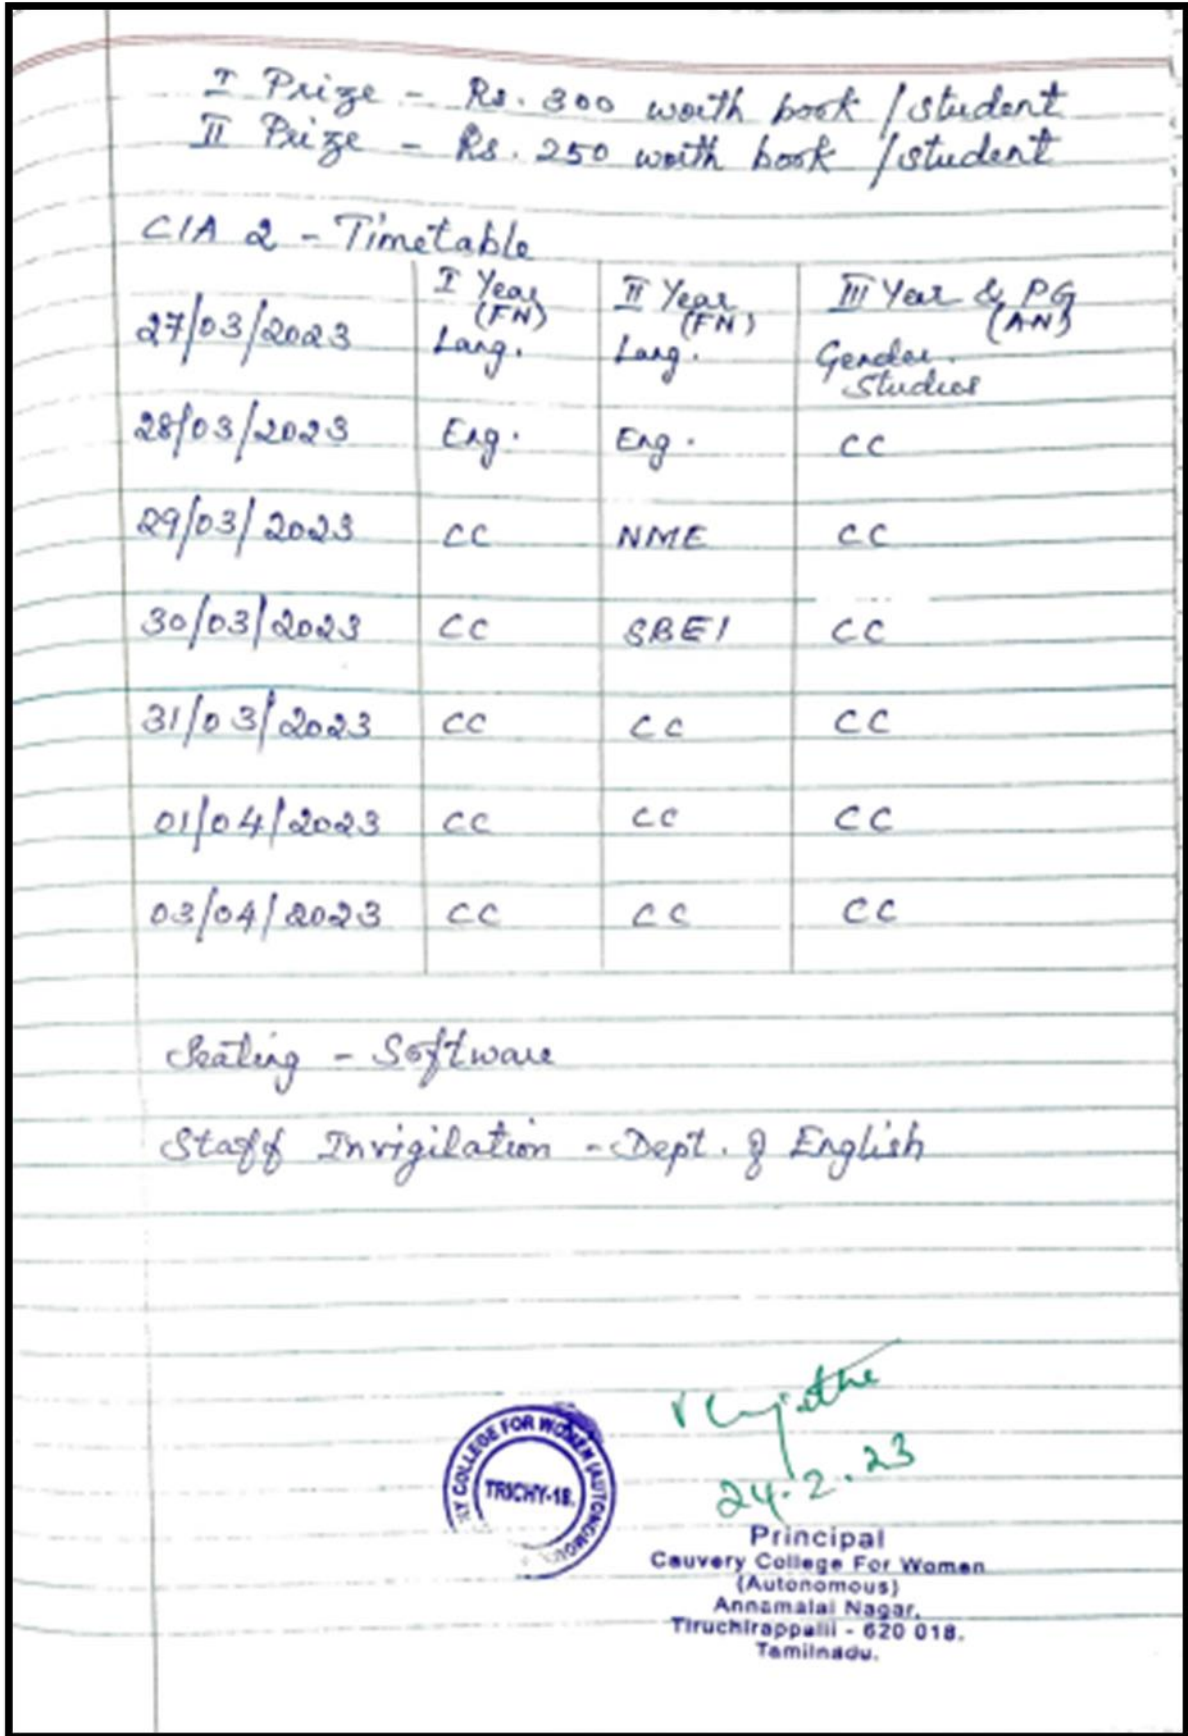 I Prize - Rs. 300 worth book / student
II Prize - Rs. 250 worth book / student
CIA 2 - Timetable
I Year (FN) II Year (FN) III Year & PG (AN)
27/03/2023 Lang. Lang. Gender Studies
28/03/2023 Eng. Eng. CC
29/03/2023 CC NME CC
30/03/2023 CC SBE1 CC
31/03/2023 CC CC CC
01/04/2023 CC CC CC
03/04/2023 CC CC CC
Seating - Software
Staff Invigilation - Dept. of English
24.2.23
RY COLLEGE FOR WOMEN (AUTONOMOUS
TRICHY-18.
Principal
Cauvery College For Women
(Autonomous)
Annamalai Nagar,
Tiruchirappalli - 620 018.
Tamilnadu.